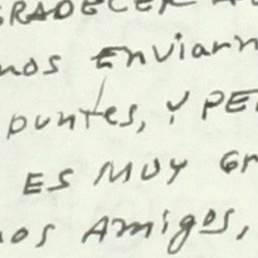 GRADECER A
nos Enviarn
puntes, Y PE
ES MUY Gr
nos Amigos,